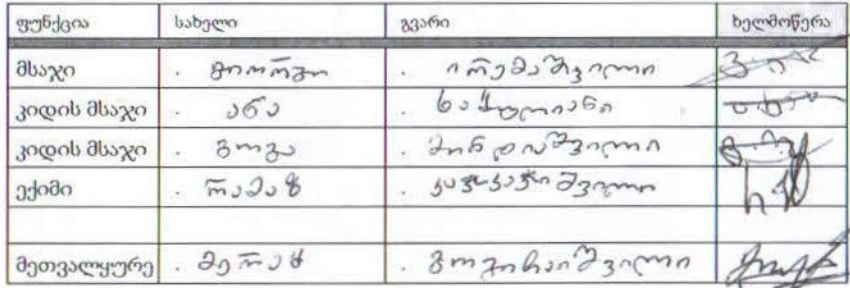 ფუნქცია სახელი გვარი ხელმოწერა
მსაჯი . გიორგი . ირემაშვილი
კიდის მსაჯი . ანა . ხაჭლიანი
კიდის მსაჯი . გოგა . მინდიაშვილი
ექიმი . რამაზ . კაჭკაჭიშვილი
მეთვალყურე . მერაბ . გოჟიაშვილი